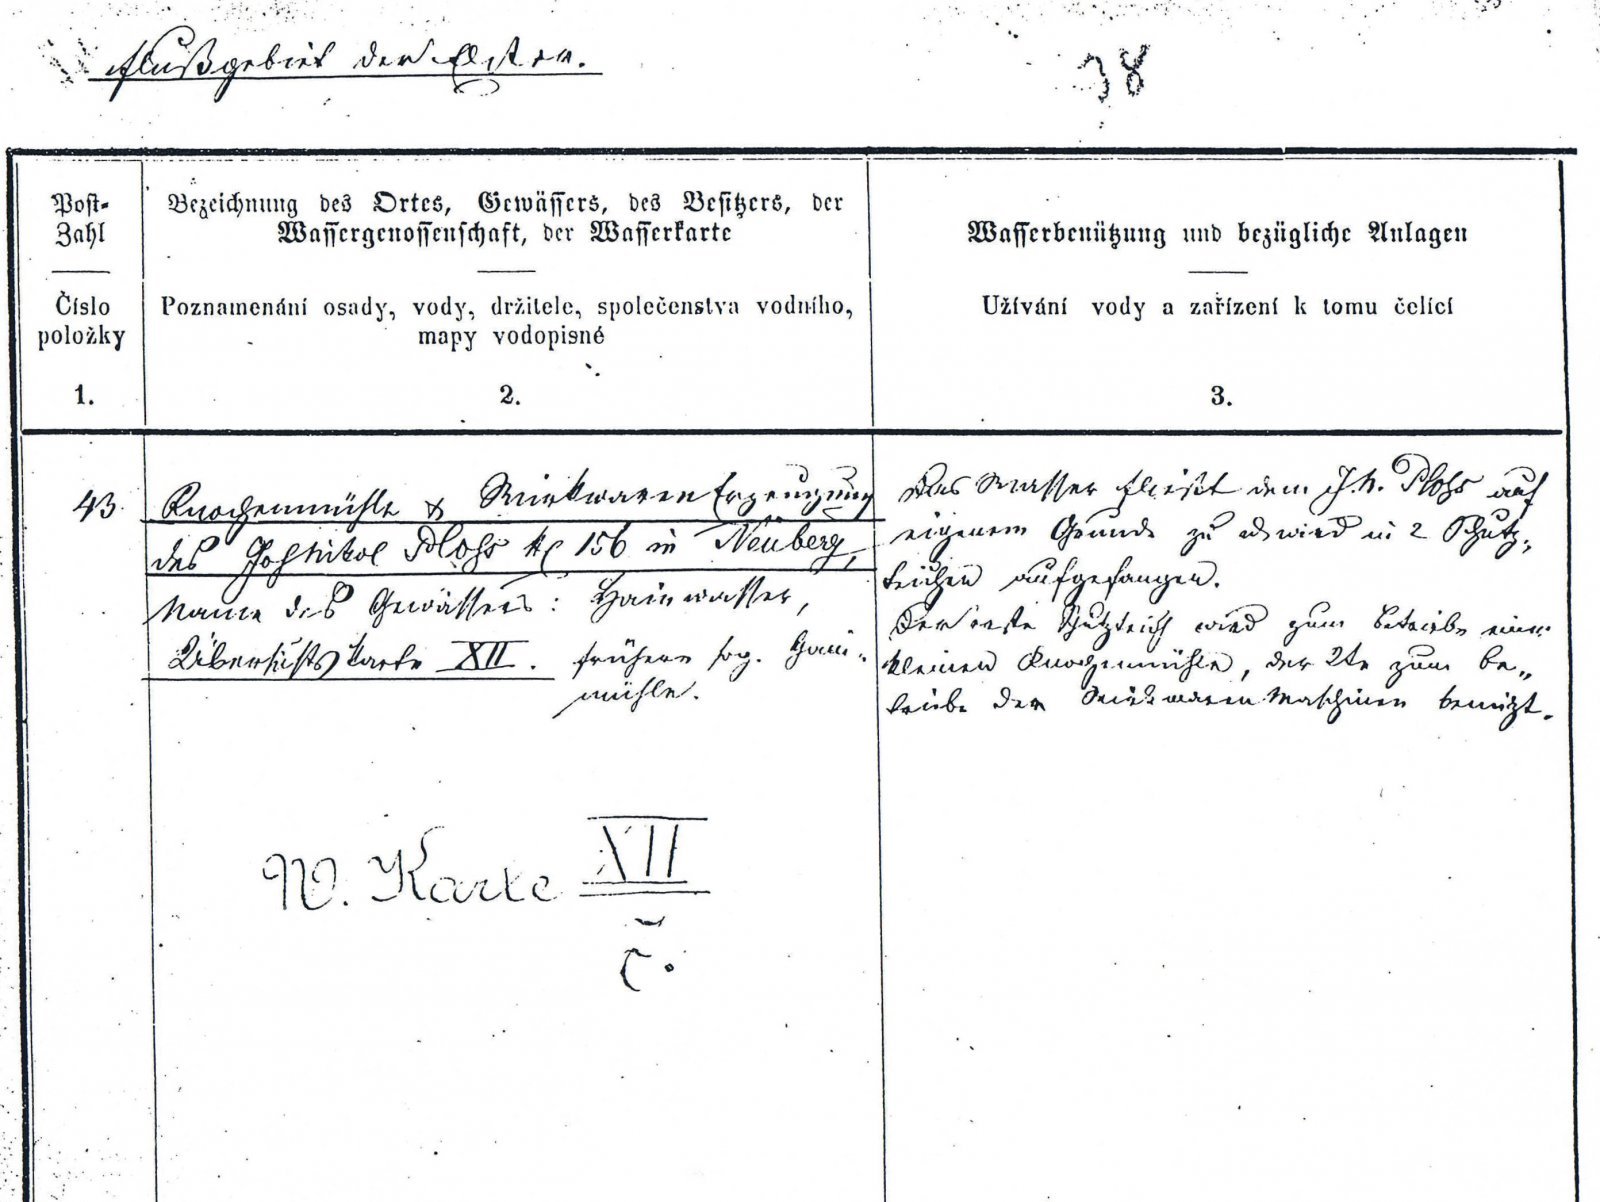 Flußgebiet der Elster.
38
Post-
Zahl
Číslo
položky
1.
Bezeichnung des Ortes, Gewässers, des Besitzers, der
Wassergenossenschaft, der Wasserkarte
Poznamenání osady, vody, držitele, společenstva vodního,
mapy vodopisné
2.
Wasserbenützung und bezügliche Anlagen
Užívání vody a zařízení k tomu čelící
3.
43
Knochenmühle & Wirkwaren Erzeugung
des Joh Nikol Ploss 156 in Neuberg,
Name des Gewässers: Hainwasser,
Übersichtskarte XII. frühere sog. Hain-
mühle.
W. Karte XII
Č.
Das Wasser fliesst dem J. N. Ploss auf
eigenem Grunde zu wird in 2 Schutz-
teichen aufgefangen.
Der erste Schutzteich wird zum Betriebe einer
kleinen Knochenmühle, der 2te zum Be-
triebe der Wirkwaren Maschinen benützt.